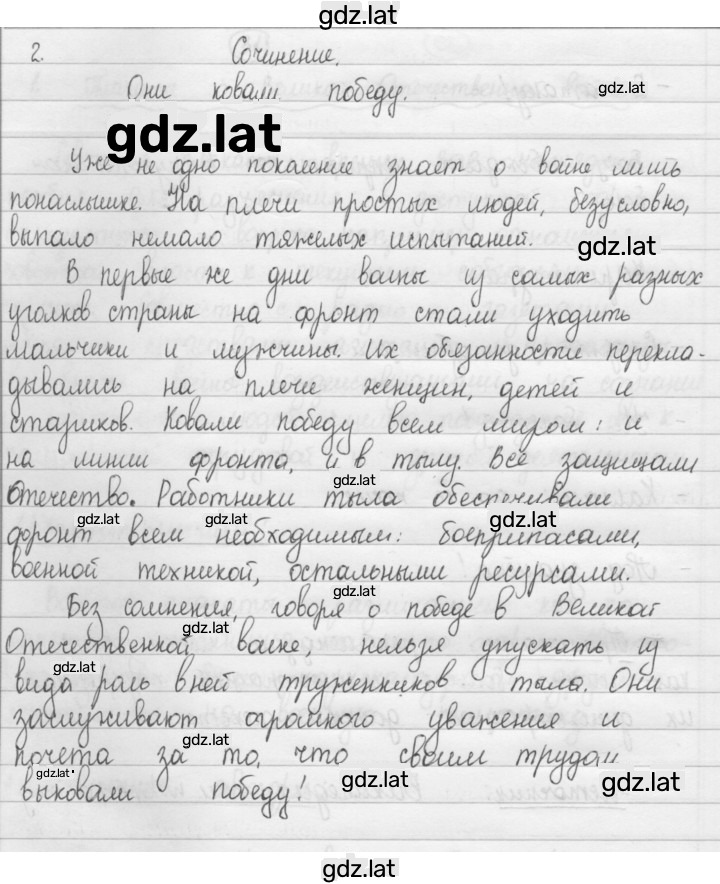 gdz.lat
2. Сочинение.
Они ковали победу.
gdz.lat
gdz.lat
Уже не одно поколение знает о войне лишь
понаслышке. На плечи простых людей, безусловно,
выпало немало тяжелых испытаний.
gdz.lat
В первые же дни войны из самых разных
уголков страны на фронт стали уходить
мальчики и мужчины. Их обязанности перекла-
дывались на плечи женщин, детей и
стариков. Ковали победу всем миром: и
на линии фронта, и в тылу. Все защищали
gdz.lat
Отечество. Работники тыла обеспечивали
gdz.lat gdz.lat gdz.lat
фронт всем необходимым: боеприпасами,
военной техникой, остальными ресурсами.
gdz.lat
Без сомнения, говоря о победе в Великой
gdz.lat
Отечественной войне нельзя упускать из
gdz.lat
вида роль в ней труженников тыла. Они
заслуживают огромного уважение и
gdz.lat
почета за то, что своим трудом
gdz.lat gdz.lat gdz.lat
выковали победу!
gdz.lat